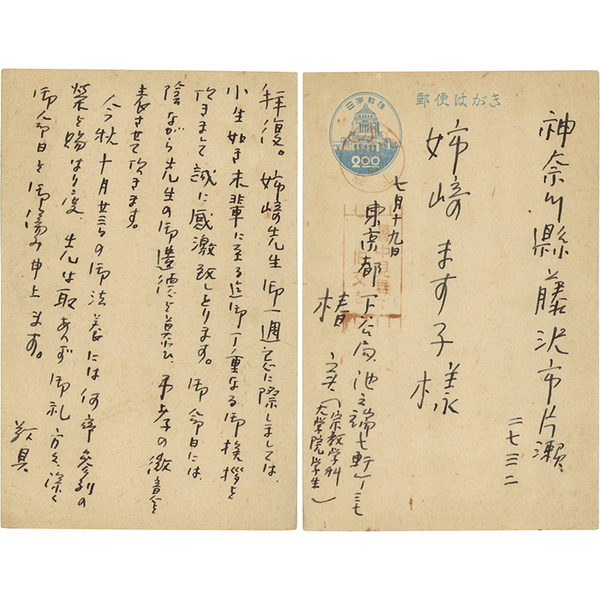 拝復。姉崎先生御一週忌に際しましては、
小生如き末輩に至る迄御丁重なる御挨拶を
頂きまして誠に感激致しとります。御命日には、
陰ながら先生の御遺徳を
表させて頂きます。
今秋十月廿三日の御法養には何卒参列の
栄を賜はり度、先は取あへず御礼方々、深く
御命日を御偲み申上ます。
敬具
日本郵便
2.00
郵便はがき
神奈川縣藤沢市片瀬
二七三二
姉崎ます子様
七月十九日
東京都下谷局池之端七軒丁三七
椿 実
(宗教学科
大学院学生)